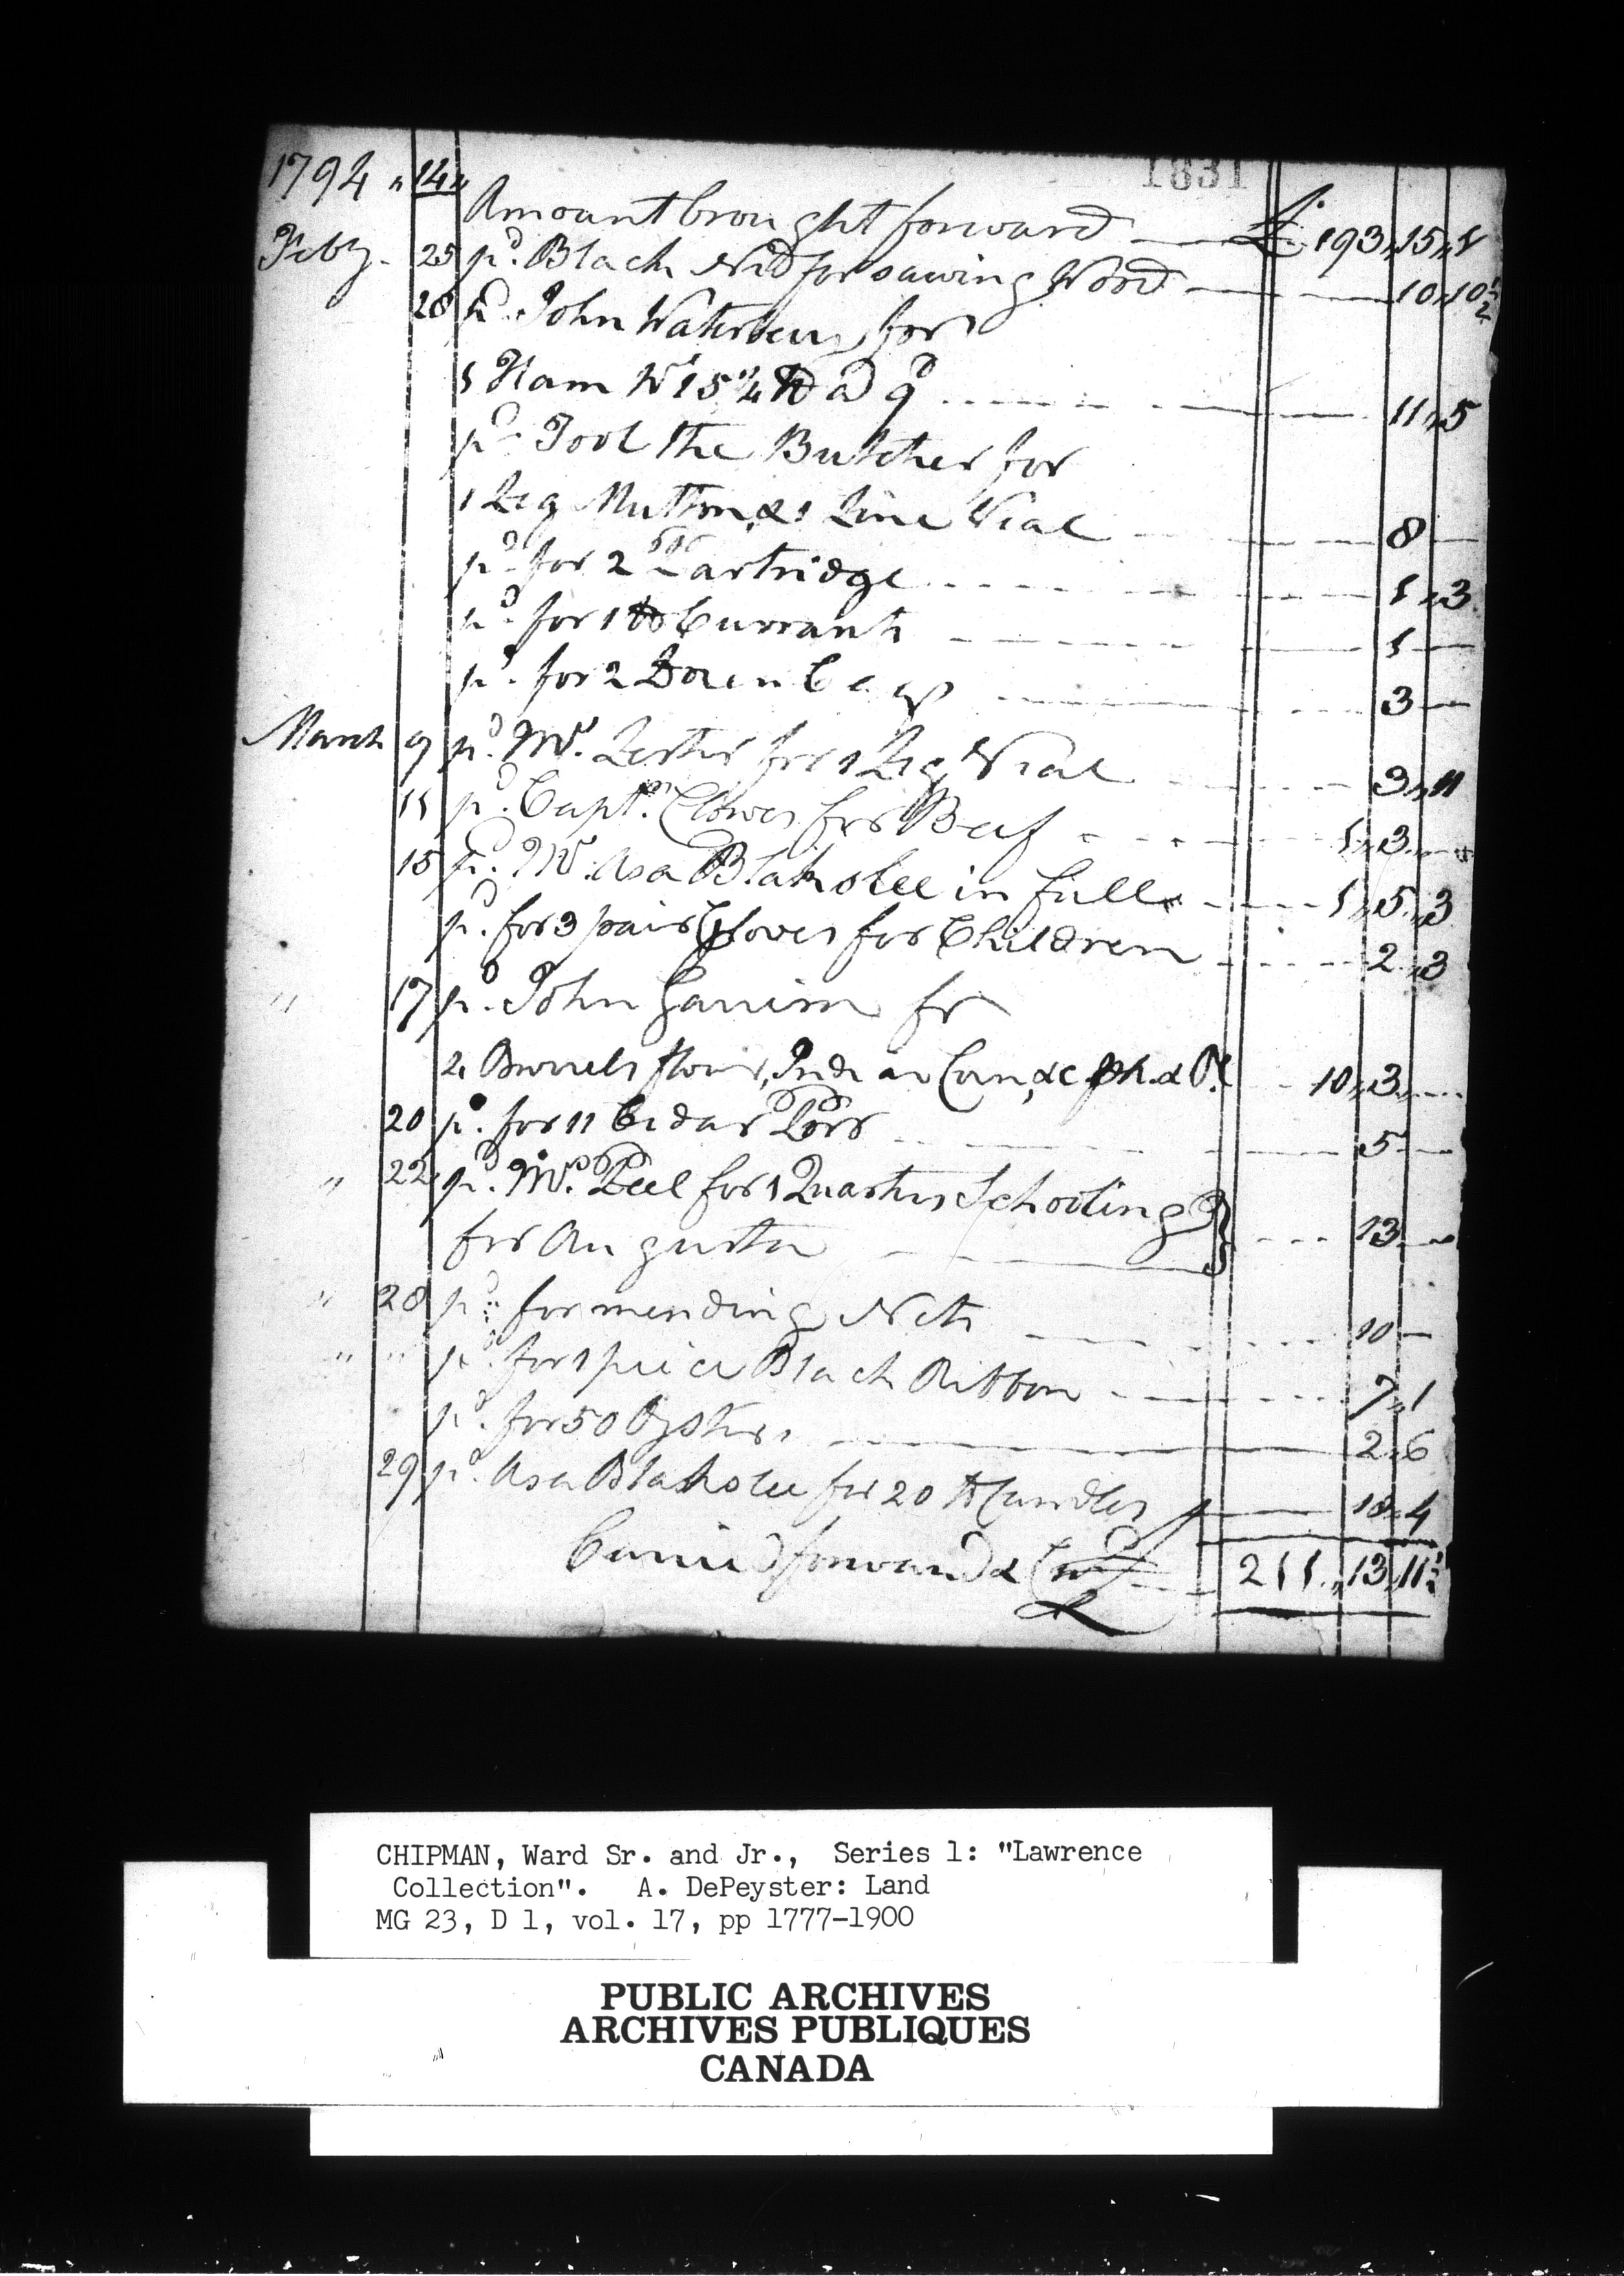 1831
1794 " 14 "
Amount brought forward £ 193 " 15 " 1
Feby. 25 pd. Black Ned for sawing Wood 10 " 10 1/2
28 pd. John Waterbury for
1 Ham Wt 15 1/4 lb @ 9d 11 " 5
pd. Tool the Butcher for
1 Leg Mutton, & 1 Line Veal 8
pd. for 2 Partridge 1 " 3
pd. for 1 lb Currants 1
pd. for 2 Dozen Eggs 3
March 9 pd. Mr. Lester for 1 Leg Veal 3 " 11
11 pd. Captn. Clowes for Beef 1 " 3
15 pd. Mr. Asa Blakslee in full 1 " 5 " 3
pd. for 3 pair Gloves for Children 2 " 3
" 17 pd. John for
2 Barrels flour, Indian Corn, &c 10 " 3
20 pd. for 11 Cedar 5
" 22 pd. Mr. Peel for 1 Quarters Schooling
for Augusta 13
" 28 pd. for mending Nets 10
" " pd. for 1 piece Black Ribbon 7 " 1
pd. for 50 Oysters 2 " 6
29 pd. Asa Blakslee for 20 lb Candles 18 " 4
Carried forward & 211 " 13 " 11 1/2
CHIPMAN, Ward Sr. and Jr., Series 1: "Lawrence
Collection". A. DePeyster: Land
MG 23, D 1, vol. 17, pp 1777-1900
PUBLIC ARCHIVES
ARCHIVES PUBLIQUES
CANADA